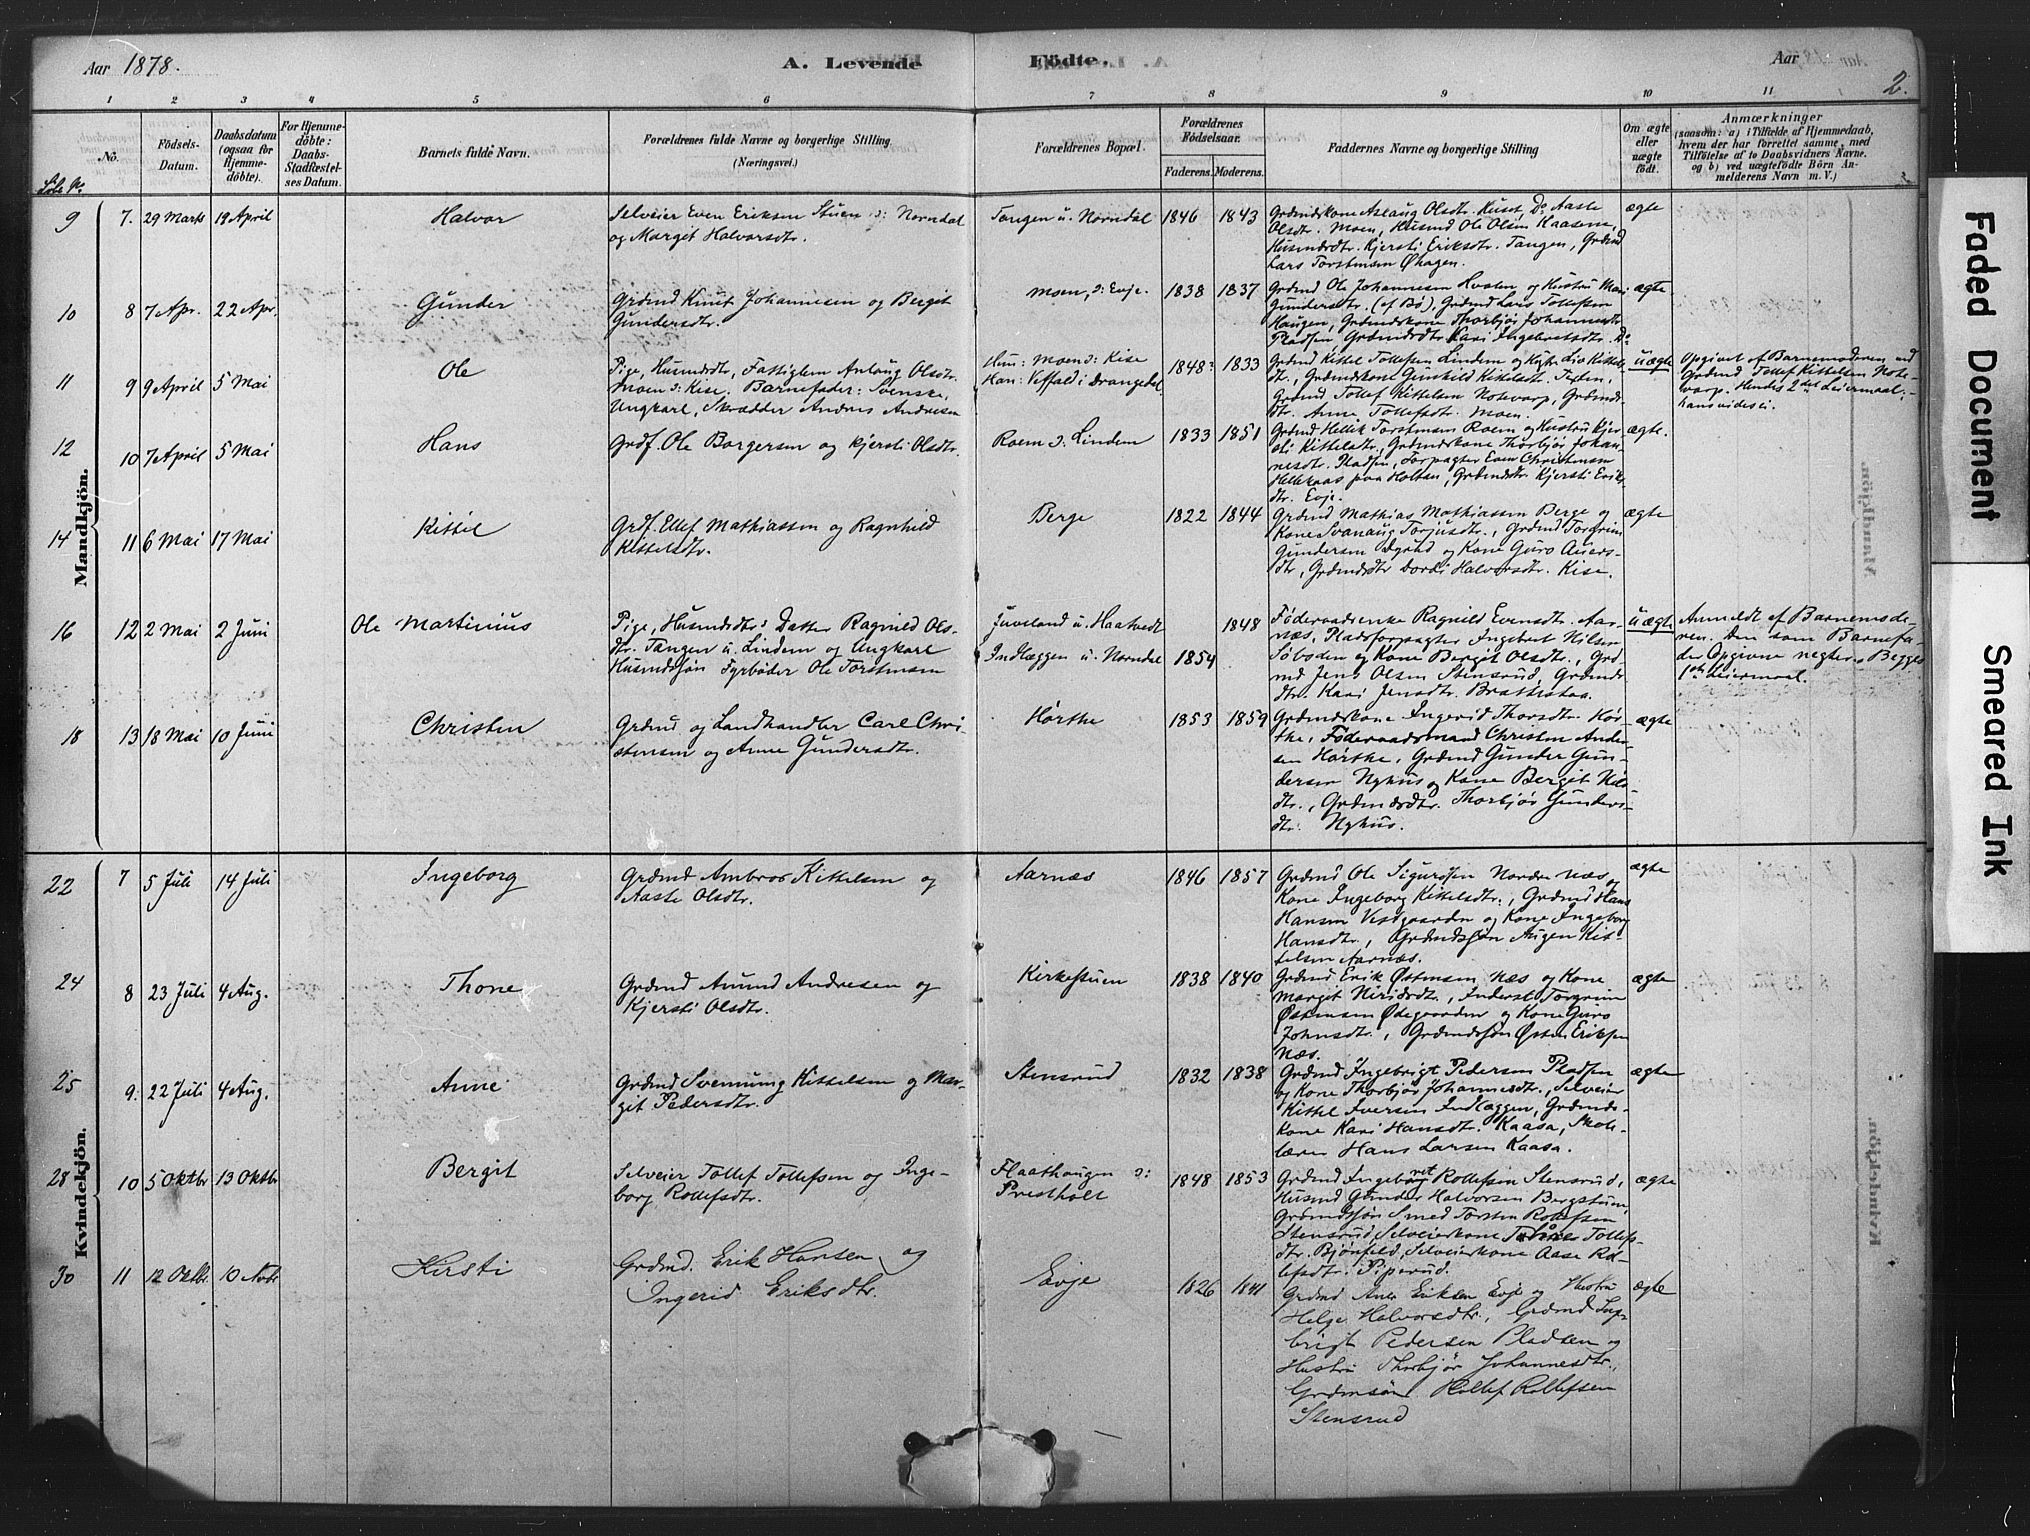 Aar 1878.
A. Levende Födte.
Aar
2.
1 2 3 4 5 6 7 8 9 10 11
No.
Födsels-Datum.
Daabsdatum (ogsaa for Hjemmedöbte).
For Hjemmedöbte: Daabs-Stadfæstelses Datum.
Barnets fulde Navn.
Forældrenes fulde Navne og borgerlige Stilling (Næringsvei.)
Forældrenes Bopæl.
Forældrenes Födselsaar.
Faderens. Moderens.
Faddernes Navne og borgerlige Stilling
Om ægte eller uægte födt.
Anmærkninger
(saasom: a) i Tilfælde af Hjemmedaab,
hvem der har forrettet samme, med
Tilföielse af to Daabsvidners Navne.
og b) ved uægtefödte Börn Anmelderens Navn m. V.)
Löbe No.
Mandkjön.
9 7. 29 Marts 19 April Halvor
Selveier Even Eriksen Stuen ɔ: Norndal
og Margit Halvorsdtr.
Tangen u. Norndal 1846 1843
Grdmdskone Aslaug Olsdtr. Huset, Do Aaste
Olsdtr. Moen, Husmd Ole Olsen Kaasene,
Husmdsdtr. Kjersti Eriksdtr. Tangen, Grdmd
Lars Torstensen Øhagen.
ægte
10 8 7 Apr. 22 Apr. Gunder
Grdmd Knut Johannesen og Bergit
Gundersdtr.
Moen, ɔ: Evje. 1838 1837
Grdmd Ole Johannesen Hvalen og Hustru Mari
Gundersdtr. (af Bø), Grdmd Lars Tollefsen
Haugen, Grdmdskone Thorbjør Johannesdtr
Pladsen Grdmdsdtr Kari Ingebretsdtr. Do
ægte
11 9 9 April 5 Mai Ole
Pige, Husmdsdtr, Fattiglem Anlaug Olsdtr.
Moen ɔ: Kise. Barnefader: Svenske,
Ungkarl, Skrædder Andres Andresen
Hun: Moen ɔ: Kise
Han: Veffald i Drangedal
1848? 1833
Grdmd Kittel Tollefsen Lindem og Hstr. Liv Kittels-
dtr., Grdmdskone Gunhild Kittelsdtr. Texten,
Grdmd Tollef Kittelsen Notevarp, Grdmds-
dtr. Anne Tollefsdtr. Moen.
uægte
Opgivet af Barnemoderen ved
Grdmd Tollef Kittelsen Note-
varp. Hendes 2det Leiermaal;
hans vides ei.
12 10 7 April 5 Mai Hans
Grdf. Ole Borgersen og Kjersti Olsdtr.
Roem ɔ: Lindem 1833 1851
Grdmd Hellik Torstensen Roem og Hustru Kjer-
sti Kittelsdtr, Grdmdskone Thorbjør Johan-
nesdtr. Pladsen, Forpagter Even Christensen
Hellekaas paa Holtan, Grdmdsdtr. Kjersti Eriks-
dtr. Evje.
ægte.
14 11 6 Mai 17 Mai Kittil
Grdf. Ellef Mathiassen og Ragnhild
Kittelsdtr.
Berge 1822 1844
Grdmd Mathias Mathiassen Berge og
Kone Svanaug Torjusdtr., Grdmd Torgrim
Gundersen Øgrud og Kone Guro Auvers-
dtr, Grdmdsdtr Dordi Halvorsdtr. Kise.
ægte
16 12 2 Mai 2 Juni Ole Martinius
Pige, Husmdsdtr: Datter Ragnild Ols-
dtr. Tangen u. Lindem og Ungkarl
Husmdssøn Fyrbøder Ole Torstensen
Juveland u. Haatvedt 1848
Indlæggen u. Norndal 1854
Føderaadsenke Ragnild Evensdtr. Aar-
næs, Pladsforpagter Ingebret Nilsen
Søboden og Kone Bergit Olsdtr., Grd-
md Jens Olsen Stensrud, Grdmds-
dtr. Kari Jensdtr. Brattestaa.
uægte
Anmeldt af Barnemode-
ren. Den som Barnefa-
der Opgivne negter. Begges
1ste Leiermaal.
18 13 18 Mai 10 Juni Christen
Grdmd og Landhandler Carl Chri-
stensen og Anne Gundersdtr.
Hørthe 1853 1859
Grdmdskone Ingerid Thorsdtr. Hør-
the, Føderaadsmand Christen Ander-
sen Hørthe, Grdmd Gunder Gun-
dersen Nyhus og Kone Bergit Nils-
dtr., Grdmdsdtr. Thorbjør Gunders-
dtr. Nyhus.
ægte
Kvindekjön.
22 7 5 Juli 14 Juli Ingeborg
Grdmd Ambros Kittelsen og
Aaste Olsdtr.
Aarnæs 1846 1857
Grdmd Ole Sigurdsen Nordre Næs og
Kone Ingeborg Kittelsdtr., Grdmd Hans
Hansen Vestgaarden og Kone Ingeborg
Hansdtr., Grdmdssøn Augen Kit-
telsen Aarnæs.
ægte
24 8 23 Juli 4 Aug. Thone
Grdmd Amund Andresen og
Kjersti Olsdtr.
Kirkestuen 1838 1840
Grdmd Erik Østensen Næs og Kone
Margit Niridsdtr., Inderst Torgrim
Østensen Ødegaarden og Kone Guro
Johnsdtr., Grdmdssøn Østen Eriksen
Næs.
ægte
25 9. 22 Juli 4 Aug. Anne
Grdmd Svennung Kittelsen og Mar-
git Pedersdtr.
Stensrud 1832 1838
Grdmd Ingebrigt Pedersen Pladsen
og Kone Thorbjør Johannesdtr., Selveier
Kittel Iversen Indlæggen, Grdmds-
kone Kari Hansdtr. Kaasa, Skole-
lærer Hans Larsen Kaasa.
ægte
28 10 5 Oktbr 13 Oktbr Bergit
Selveier Tollef Tollefsen og Inge-
borg Rollefsdtr.
Flaathaugen ɔ:
Prestholt
1848 1853
Grdmd Ingebret Rollefsen Stensrud,
Husmd Gunder Halvorsen Bergstuen,
Grdmdssøn Smed Torsten Rollefsen
Stensrud, Selveierkone Thone Tollefs-
dtr. Bjønfeld, Selveierkone Aase Rol-
lefsdtr. Piperud.
ægte
30 11 12 Oktbr. 10 Novbr Kirsti
Grdmd. Erik Hansen og
Ingerid Eriksdtr.
Evje 1826 1841
Grdmd Aner Eriksen Evje og Hustru
Helge Halvorsdtr., Grdmd Ing-
brigt Pedersen Pladsen og
Hustru Thorbjør Johannesdtr.,
Grdmsøn Hollef Rollefsen
Stensrud
ægte
Faded Document
Smeared Ink